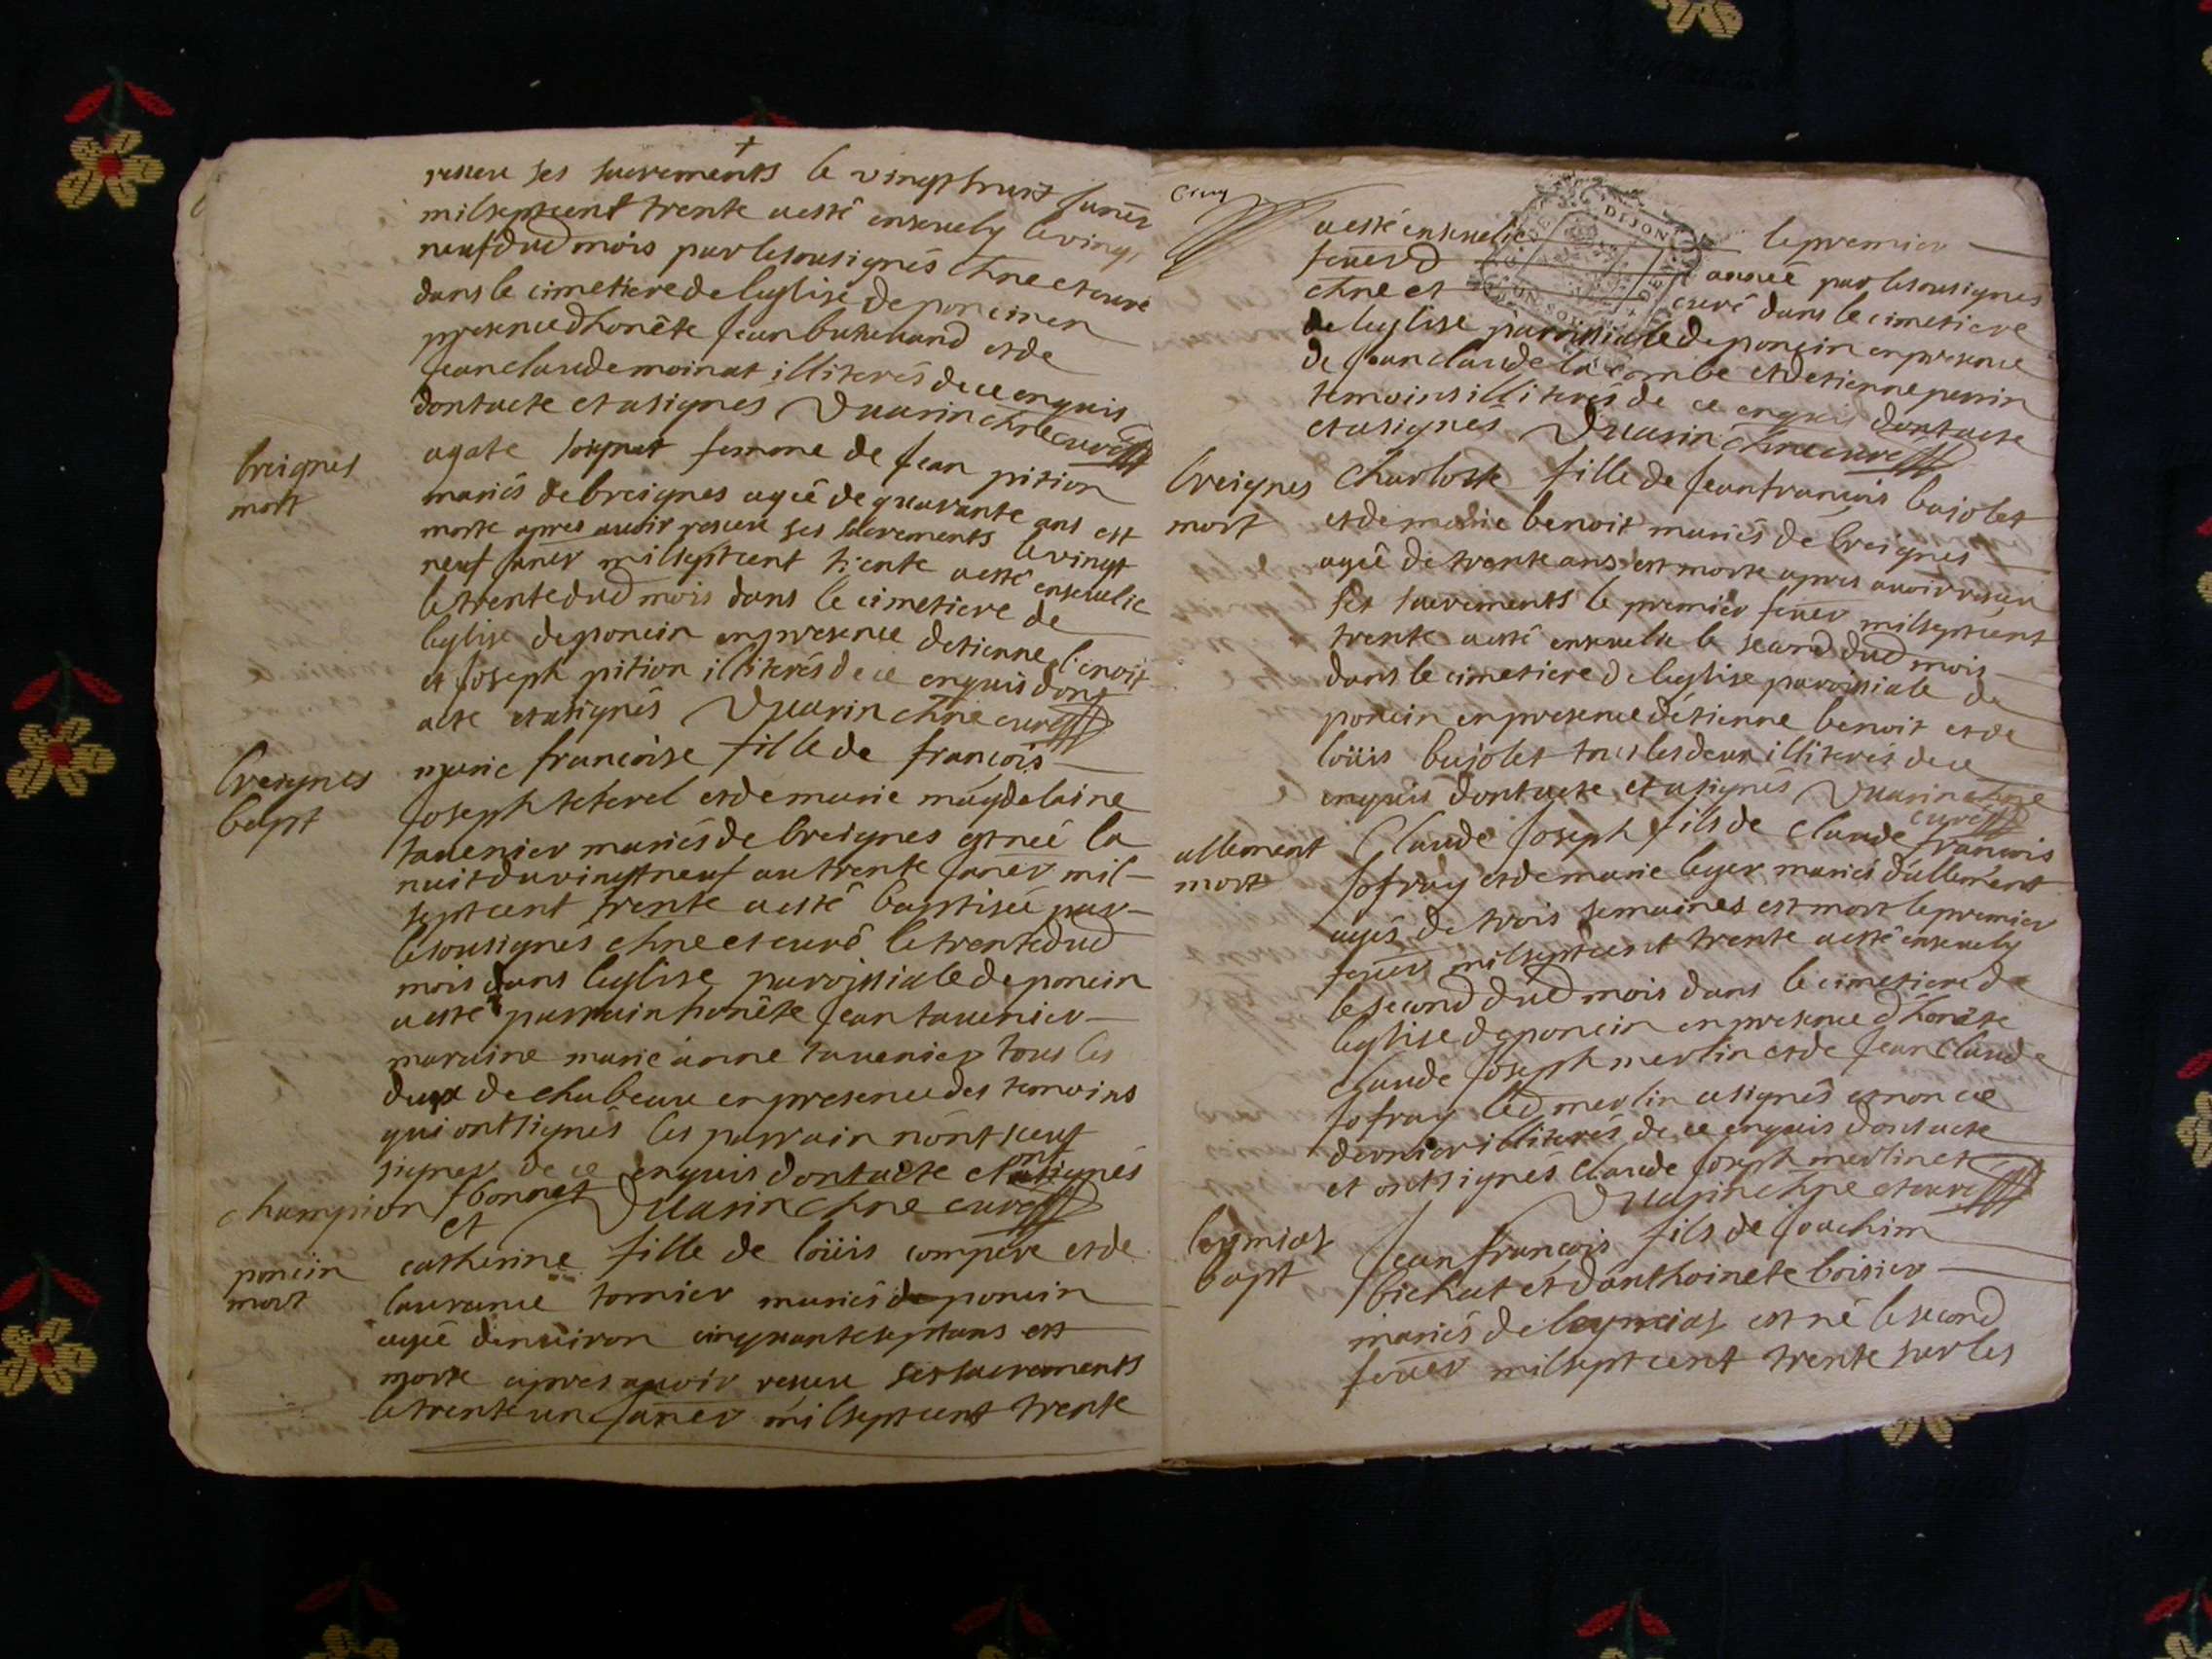 receu ses sacrements le vingt huit janer
mil sept cent trente a esté ensevely le vingt
neuf dud mois par le sousignés chne et curé
dans le cimetiere de leglise de poncin en
presence dhonête Jean buteuand et de
Jean claude moinat illiterés de ce enquis
dont acte et a signés Duuarin chne curé
breignes
mort
agate soignat femme de Jean pition
mariés de breignes ageé de quarante ans est
morte apres avoir receu ses sacrements le vingt
neuf janer mil sept cent trente a esté ensevelie
le trente dud mois dans le cimetiere de
leglise de poncin en presence detienne benoit
et Joseph pition illiterés de ce enquis dont
acte et a signés Duuarin chne curé
breignes
bapt
marie francoise fille de françois
Joseph teterel et de marie magdelaine
tavenier mariés de breignes est neé la
nuit du vingt neuf au trente janer mil
sept cent trente a esté baptiseé par
le sousignés chne et curé le trente dud
mois dans leglise paroissiale de poncin
a esté parrain honête Jean tavenier
maraine marie anne tavenier tous les
deux de chabeau en presence des temoins
qui ont signés les parrain nont sceut
signer de ce enquis dont acte et ont signés
champion et bonnet Duuarin chne curé
poncin
mort
catherine fille de loüis compere et de
laurance tornier mariés de poncin
ageé denviron cinquante sept ans est
morte apres avoir receu ses sacrements
le trente un janer mil sept cent trente
cinq
a esté ensevelie le premier
fever d annee par le sousignes
chne et curé dans le cimetiere
de leglise paroissiale de poncin en presence
de Jean claude la combe et detienne perrin
temoins illiterés de ce enquis dont acte
et a signés Duuarin chne curé
DIJON
breignes
mort
Charlotte fille de Jean francois bajolet
et de marie benoit mariés de breignes
ageê de trente ans est morte apres avoir receu
ses sacrements le premier fever mil sept cent
trente a esté ensevelie le second dud mois
dans le cimetiere de leglise paroissiale de
poncin en presence detienne benoit et de
loüis bajolet tous les deux illiterés de ce
enquis dont acte et a signés Duuarin chne
curé
allement
mort
Claude Joseph fils de claude francois
Jofray et de marie leger mariés dallement
agés de trois semaines est mort le premier
fever mil sept cent trente a esté ensevely
le second dud mois dans le cimetiere de
leglise de poncin en presence dhonête
Claude Joseph merlin et de Jean Claude
Jofray led merlin a signés et non ce
dernier illiterés de ce enquis dont acte
et ont signés Claude Joseph merlin et
Duuarin chne et curé
leymiat
bapt
Jean françois fils de Joachim
bichat et danthoinete boisier
mariés de leymiat est né le second
fever mil sept cent trente sur les